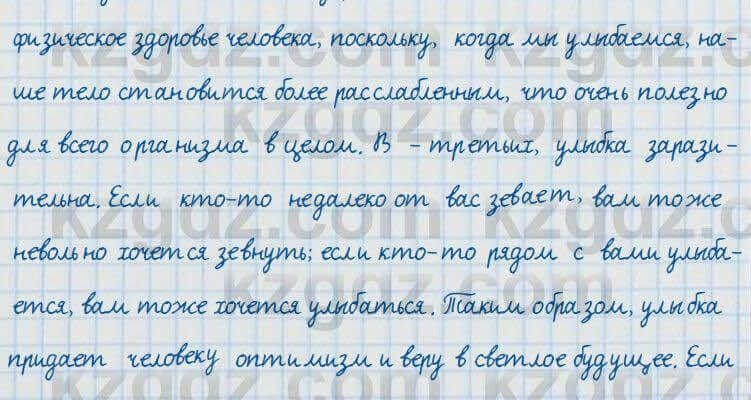 физическое здоровье человека, поскольку, когда мы улыбаемся, на-
ше тело становится более расслабленным, что очень полезно
для всего организма в целом. В - третьих, улыбка зарази-
тельна. Если кто-то недалеко от вас зевает, вам тоже
невольно хочется зевнуть; если кто-то рядом с вами улыба-
ется, вам тоже хочется улыбаться. Таким образом, улыбка
придает человеку оптимизм и веру в светлое будущее. Если